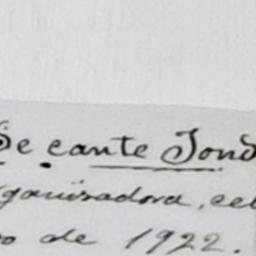 De cante Jond
ganizadora, cel
o de 1922.